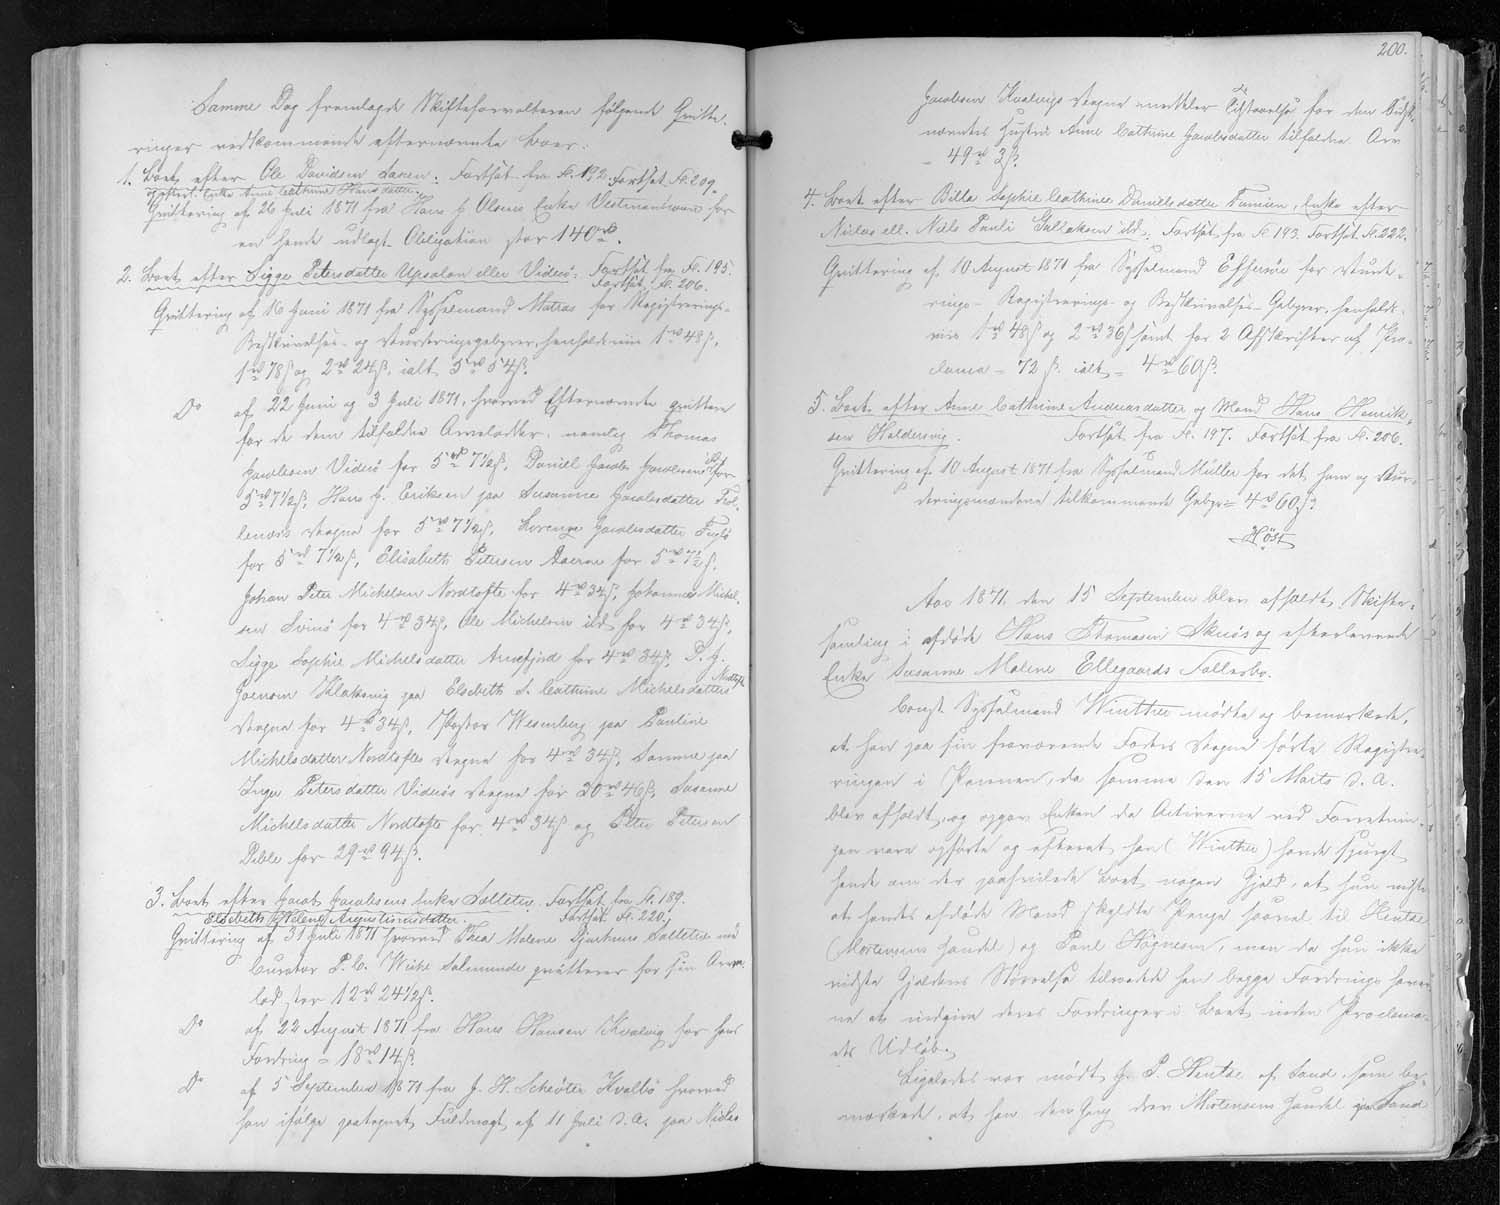 Samme Dag fremlagde Skifteforvalteren følgende Qvitte-
ringer vedkommende efternævnte Boer:
1. Boet efter Ole Davidsen Fortsat fra Fl. 192. Fortsat Fl. 209.
og efterl. Enke Anne Cathrine Hansdatter.
Qvittering af 26 Juli 1871 fra Hans J. Olsens Enke Vestmanhavn for
en hende udlagt Obligation stor 140 rd.
2. Boet efter Sigge Petersdatter Upsalon eller Viderö: Fortsat fra Fl. 195.
Fortsat Fl. 206.
Qvittering af 16 Juni 1871 fra Sysselmand Matras for Registrerings-
Beskrivelses- og Vurderingsgebyrer, henholdsviis 1 rd 48 ß,
1 rd 78 ß og 2 rd 24 ß, ialt 5 rd 54 ß.
Do af 22 Juni og 3 Juli 1871, hvorved Efternævnte qvittere
for de dem tilfaldne Arvelodder, nemlig Thomas
Jacobsen Viderö for 5 rd 7 1/2 ß, Daniel Jacob Jacobsen for
5 rd 7 1/2 ß, Hans J. Eriksen paa Susanne Jacobsdatter
Vegne for 5 rd 7 1/2 ß, Lorenze Jacobsdatter Fuglö
for 5 rd 7 1/2 ß, Elisabeth Petersen for 5 rd 7 1/2 ß,
Johan Peter Michelsen Nordtofte for 4 rd 34 ß, Johannes Michel-
sen Svinö for 4 rd 34 ß, Ole Michelsen ibd for 4 rd 34 ß,
Sigge Sophie Michelsdatter Arnefjord for 4 rd 34 ß, P. J.
Joensen Klaksvig paa Elsebeth S. Cathrine Michelsdatters Nordtofte
Vegne for 4 rd 34 ß, Pastor Wesenberg paa Pauline
Michelsdatter Nordtoftes Vegne for 4 rd 34 ß, Samme paa
Inger Petersdatter Viderös Vegne for 30 rd 46 ß, Susanne
Michelsdatter Nordtofte for 4 rd 34 ß og Peter Petersen
Deble for 29 rd 94 ß.
3. Boet efter Jacob Jacobsens Enke Salletin. Fortsat fra Fl. 189.
Elsebeth Helene Augustinusdatter. Fortsat Fl. 220.
Qvittering af 31 Juli 1871 hvorved Thea Malene med
Curator P. C. qvitterer for sin Arve-
lod stor 12 rd 24 1/2 ß.
Do af 22 August 1871 fra Hans Hansen Kvalvig for hans
Fordring = 18 rd 14 ß.
Do af 5 September 1871 fra J. H. Schröter Kvalbö hvorved
han ifølge paategnet Fuldmagt af 11 Juli d. A. paa Niclas
200.
Jacobsen Kvalvigs Vegne meddeler Tilstaaelse for den Sidst-
nævntes Hustru Anne Cathrine Jacobsdatter tilfaldne Arv
= 49 rd 2 ß.
4. Boet efter Bille Sophie Cathrine Danielsdatter Famien, Enke efter
Niclas ell. Niels Pauli Gullaksen ibd: Fortsat fra Fl 193. Fortsat Fl. 222.
Qvittering af 10 August 1871 fra Sysselmand Effersøe for Vurde-
rings- Registrerings- og Beskrivelses-Gebyrer, henholds-
viis 1 rd 48 ß og 2 rd 36 ß samt for 2 Afskrifter af Pro-
clama = 72 ß. ialt = 4 rd 60 ß.
5. Boet efter Anne Cathrine Andreasdatter og Mand Hans Henrik-
sen Haldersvig. Fortsat fra Fl. 197. Fortsat fra Fl. 206.
Qvittering af 10 August 1871 fra Sysselmand Müller for det ham og Vur-
deringsmændene tilkommende Gebyr = 4 rd 60 ß.
Höst
Aar 1871 den 15 September blev afholdt Skifte-
samling i afdøde Hans Thomasen Skuös og efterlevende
Enke Susanne Malene Ellegaards Fællesbo.
Const. Sysselmand Winther mødte og bemærkede,
at han paa sin fraværende Faders Vegne førte Registre-
ringen i Pennen, da samme den 15 Marts d. A.
blev afholdt, og opgav Enken da Activerne ved Forretnin-
gen vare opførte og efterat han (Winther) havde spurgt
hende om der paahvilede Boet nogen Gjæld, at hun vidste
at hendes afdøde Mand skyldte Penge saavel til Hentze
(Mortensens Handel) og Poul Høgnesen, men da hun ikke
vidste Gjældens Størrelse tilraadede han begge Fordringshaver-
ne at indgive deres Fordringer i Boet inden Proclama-
ets Udløb.
Ligeledes var mødt J. P. Hentze af Sand, som be-
mærkede, at han den Gang drev Mortensens Handel paa Sand